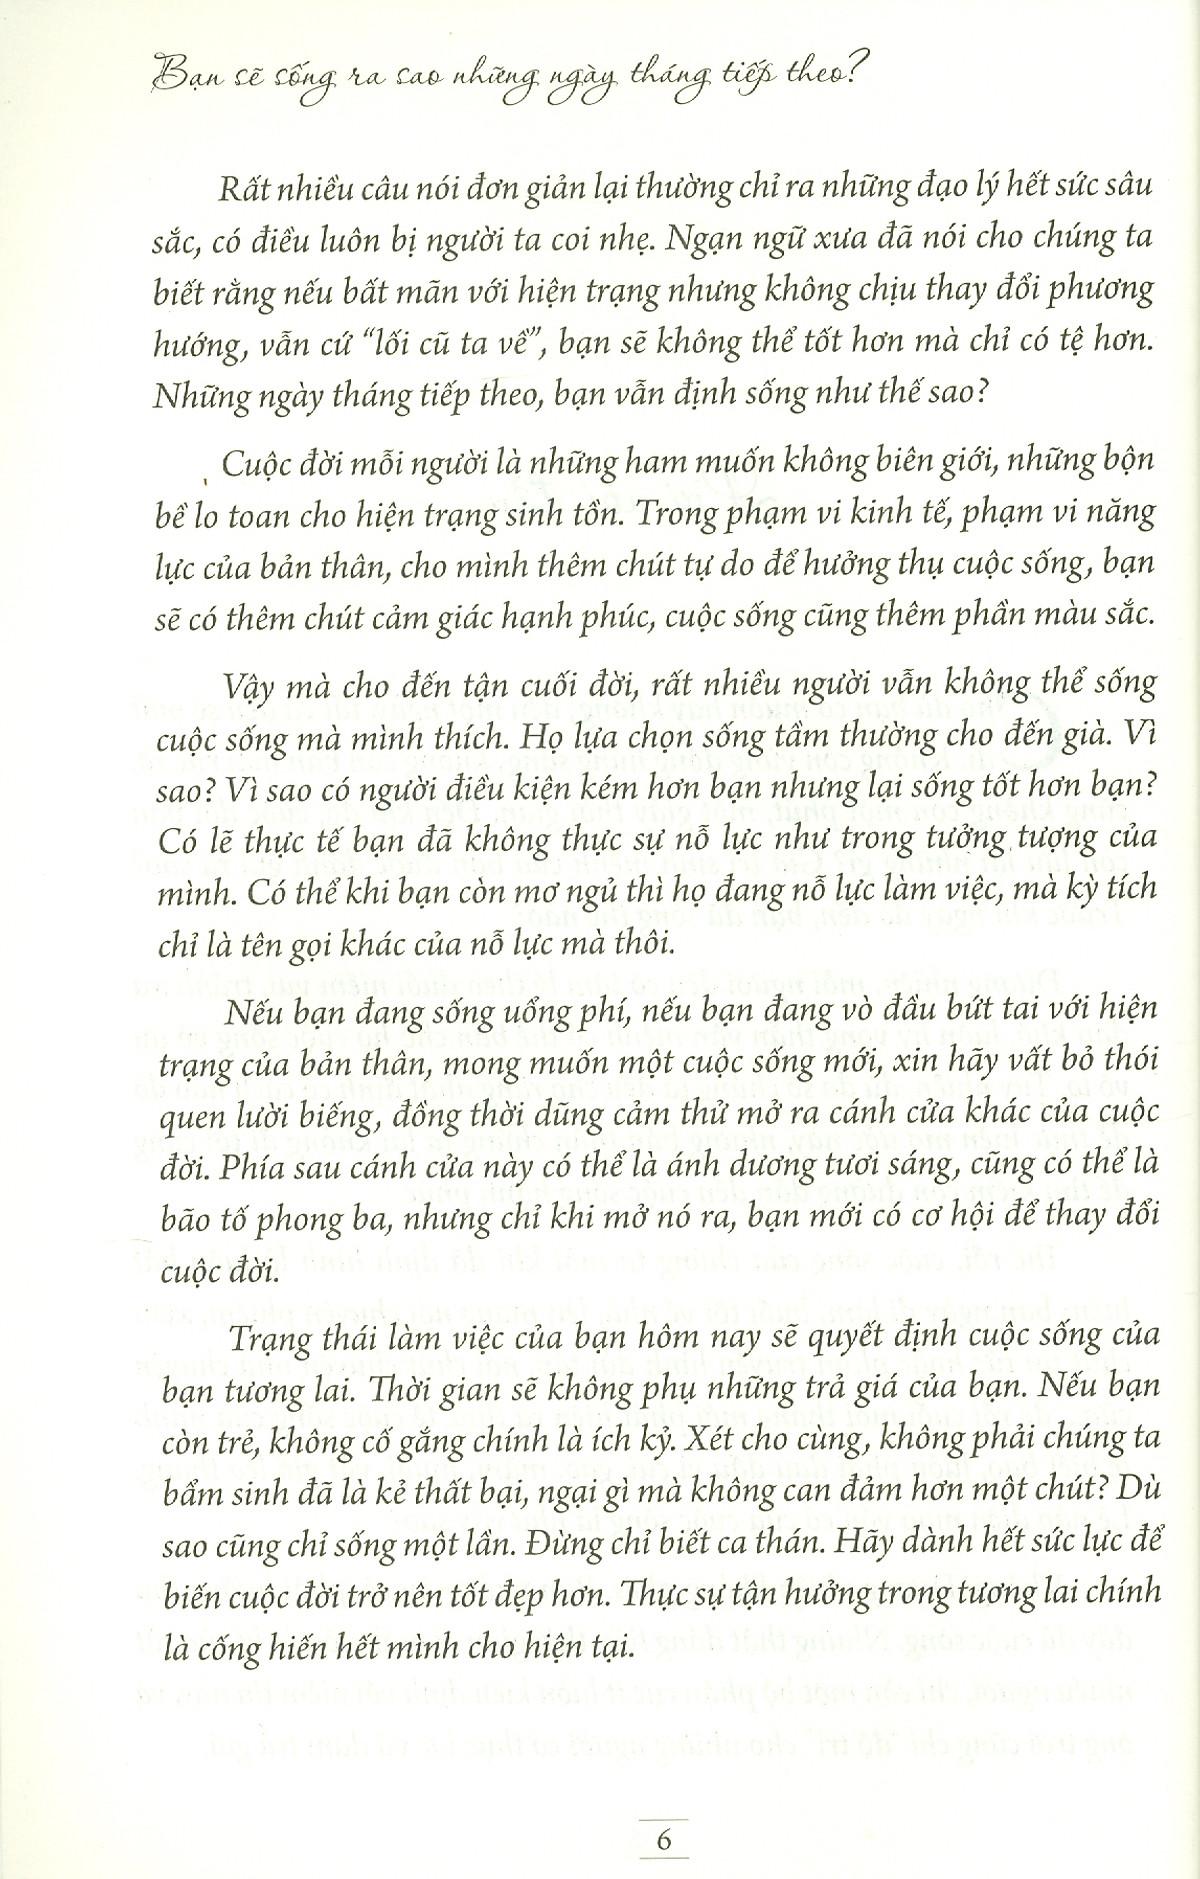 Bạn sẽ sống ra sao những ngày tháng tiếp theo?
Rất nhiều câu nói đơn giản lại thường chỉ ra những đạo lý hết sức sâu
sắc, có điều luôn bị người ta coi nhẹ. Ngạn ngữ xưa đã nói cho chúng ta
biết rằng nếu bất mãn với hiện trạng nhưng không chịu thay đổi phương
hướng, vẫn cứ “lối cũ ta về”, bạn sẽ không thể tốt hơn mà chỉ có tệ hơn.
Những ngày tháng tiếp theo, bạn vẫn định sống như thế sao?
Cuộc đời mỗi người là những ham muốn không biên giới, những bộn
bề lo toan cho hiện trạng sinh tồn. Trong phạm vi kinh tế, phạm vi năng
lực của bản thân, cho mình thêm chút tự do để hưởng thụ cuộc sống, bạn
sẽ có thêm chút cảm giác hạnh phúc, cuộc sống cũng thêm phần màu sắc.
Vậy mà cho đến tận cuối đời, rất nhiều người vẫn không thể sống
cuộc sống mà mình thích. Họ lựa chọn sống tầm thường cho đến già. Vì
sao? Vì sao có người điều kiện kém hơn bạn nhưng lại sống tốt hơn bạn?
Có lẽ thực tế bạn đã không thực sự nỗ lực như trong tưởng tượng của
mình. Có thể khi bạn còn mơ ngủ thì họ đang nỗ lực làm việc, mà kỳ tích
chỉ là tên gọi khác của nỗ lực mà thôi.
Nếu bạn đang sống uổng phí, nếu bạn đang vò đầu bứt tai với hiện
trạng của bản thân, mong muốn một cuộc sống mới, xin hãy vất bỏ thói
quen lười biếng, đồng thời dũng cảm thử mở ra cánh cửa khác của cuộc
đời. Phía sau cánh cửa này có thể là ánh dương tươi sáng, cũng có thể là
bão tố phong ba, nhưng chỉ khi mở nó ra, bạn mới có cơ hội để thay đổi
cuộc đời.
Trạng thái làm việc của bạn hôm nay sẽ quyết định cuộc sống của
bạn tương lai. Thời gian sẽ không phụ những trả giá của bạn. Nếu bạn
còn trẻ, không cố gắng chính là ích kỷ. Xét cho cùng, không phải chúng ta
bẩm sinh đã là kẻ thất bại, ngại gì mà không can đảm hơn một chút? Dù
sao cũng chỉ sống một lần. Đừng chỉ biết ca thán. Hãy dành hết sức lực để
biến cuộc đời trở nên tốt đẹp hơn. Thực sự tận hưởng trong tương lai chính
là cống hiến hết mình cho hiện tại.
6